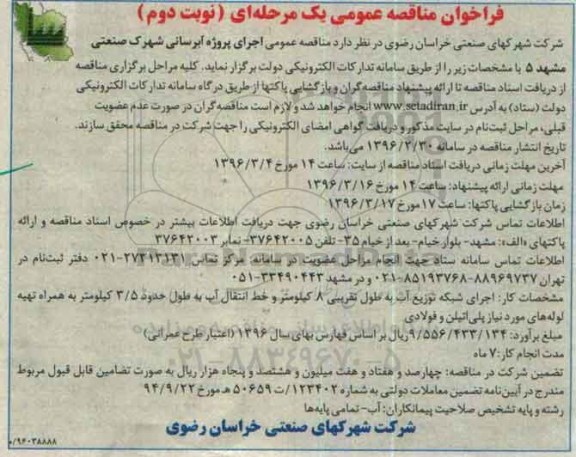 فراخوان مناقصه عمومی یک مرحله‌ای (نوبت دوم)
شرکت شهرکهای صنعتی خراسان رضوی در نظر دارد مناقصه عمومی اجرای پروژه آبرسانی شهرک صنعتی
مشهد ۵ با مشخصات زیر را از طریق سامانه تدارکات الکترونیکی دولت برگزار نماید. کلیه مراحل برگزاری مناقصه
از دریافت اسناد مناقصه تا ارائه پیشنهاد مناقصه‌گران و بازگشایی پاکتها از طریق درگاه سامانه تدارکات الکترونیکی
دولت (ستاد) به آدرس www.setadiran.ir انجام خواهد شد و لازم است مناقصه‌گران در صورت عدم عضویت
قبلی، مراحل ثبت‌نام در سایت مذکور و دریافت گواهی امضای الکترونیکی را جهت شرکت در مناقصه محقق سازند.
تاریخ انتشار مناقصه در سامانه ۱۳۹۶/۲/۳۰ می‌باشد.
آخرین مهلت زمانی دریافت اسناد مناقصه از سایت: ساعت ۱۴ مورخ ۱۳۹۶/۳/۴
مهلت زمانی ارائه پیشنهاد: ساعت ۱۴ مورخ ۱۳۹۶/۳/۱۶
زمان بازگشایی پاکتها: ساعت ۱۷ مورخ ۱۳۹۶/۳/۱۷
اطلاعات تماس شرکت شهرکهای صنعتی خراسان رضوی جهت دریافت اطلاعات بیشتر در خصوص اسناد مناقصه و ارائه
پاکتهای «الف»: مشهد- بلوار خیام- بعد از خیام ۳۵- تلفن ۳۷۶۴۲۰۰۵- نمابر ۳۷۶۴۲۰۰۳
اطلاعات تماس سامانه ستاد جهت انجام مراحل عضویت در سامانه: مرکز تماس ۲۷۳۱۳۱۳۱-۰۲۱ دفتر ثبت‌نام در
تهران ۸۸۹۶۹۷۳۷-۸۵۱۹۳۷۶۸-۰۲۱ و در مشهد ۳۳۴۹۰۴۴۳-۰۵۱
مشخصات کار: اجرای شبکه توزیع آب به طول تقریبی ۸ کیلومتر و خط انتقال آب به طول حدود ۳/۵ کیلومتر به همراه تهیه
لوله‌های مورد نیاز پلی‌اتیلن و فولادی
مبلغ برآورد: ۹/۵۵۶/۴۳۳/۱۳۴ ریال بر اساس فهارس بهای سال ۱۳۹۶ (اعتبار طرح عمرانی)
مدت انجام کار: ۷ ماه
تضمین شرکت در مناقصه: چهارصد و هفتاد و هفت میلیون و هشتصد و پنجاه هزار ریال به صورت تضامین قابل قبول مربوط
مندرج در آیین‌نامه تضمین معاملات دولتی به شماره ۱۲۳۴۰۲/ت ۵۰۶۵۹ ه مورخ ۹۴/۹/۲۲
رشته و پایه تشخیص صلاحیت پیمانکاران: آب- تمامی پایه‌ها
شرکت شهرکهای صنعتی خراسان رضوی
۰۲۱-۸۸۳۴۹۶۷۰-۵